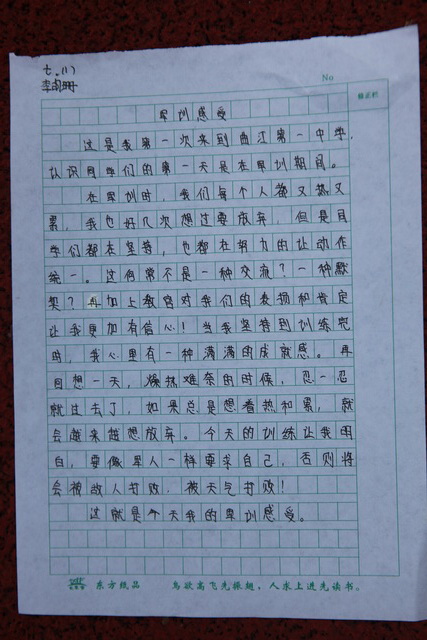 七.(1)
No
修正栏
军训感受
这是我第一次来到曲江第一中学,
认识同学们的第一天是在军训期间。
在军训时,我们每个人都又热又
累,我也好几次想过要放弃,但是同
学们都在坚持,也都在努力的让动作
统一。这何常不是一种交流?一种默
契?再加上教官对我们的表扬和肯定
让我更加有信心!当我坚持到训练完
时,我心里有一种满满的成就感。再
回想一天,燥热难奈的时候,忍一忍
就过去了,如果总是想着热和累,就
会越来越想放弃。今天的训练让我明
白,要像军人一样要求自己,否则将
会被敌人打败,被天气打败!
这就是今天我的军训感受。
东方纸品 鸟欲高飞先振翅,人求上进先读书。